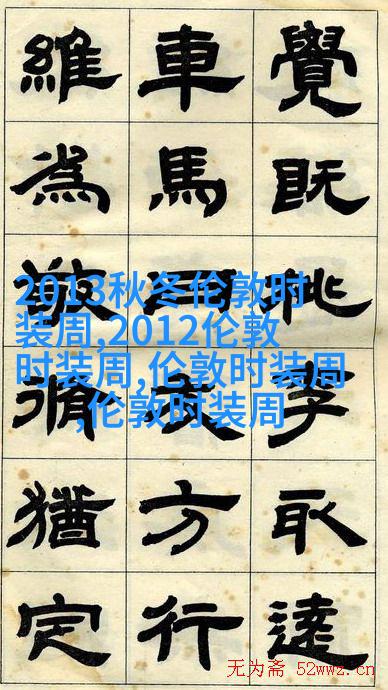 覺既桃李取達
車馬用方行
維為脩猶定
2013秋冬伦敦时
装周,2012伦敦
时装周,伦敦时装周
,伦敦时装周
无为斋 52wwz.cn